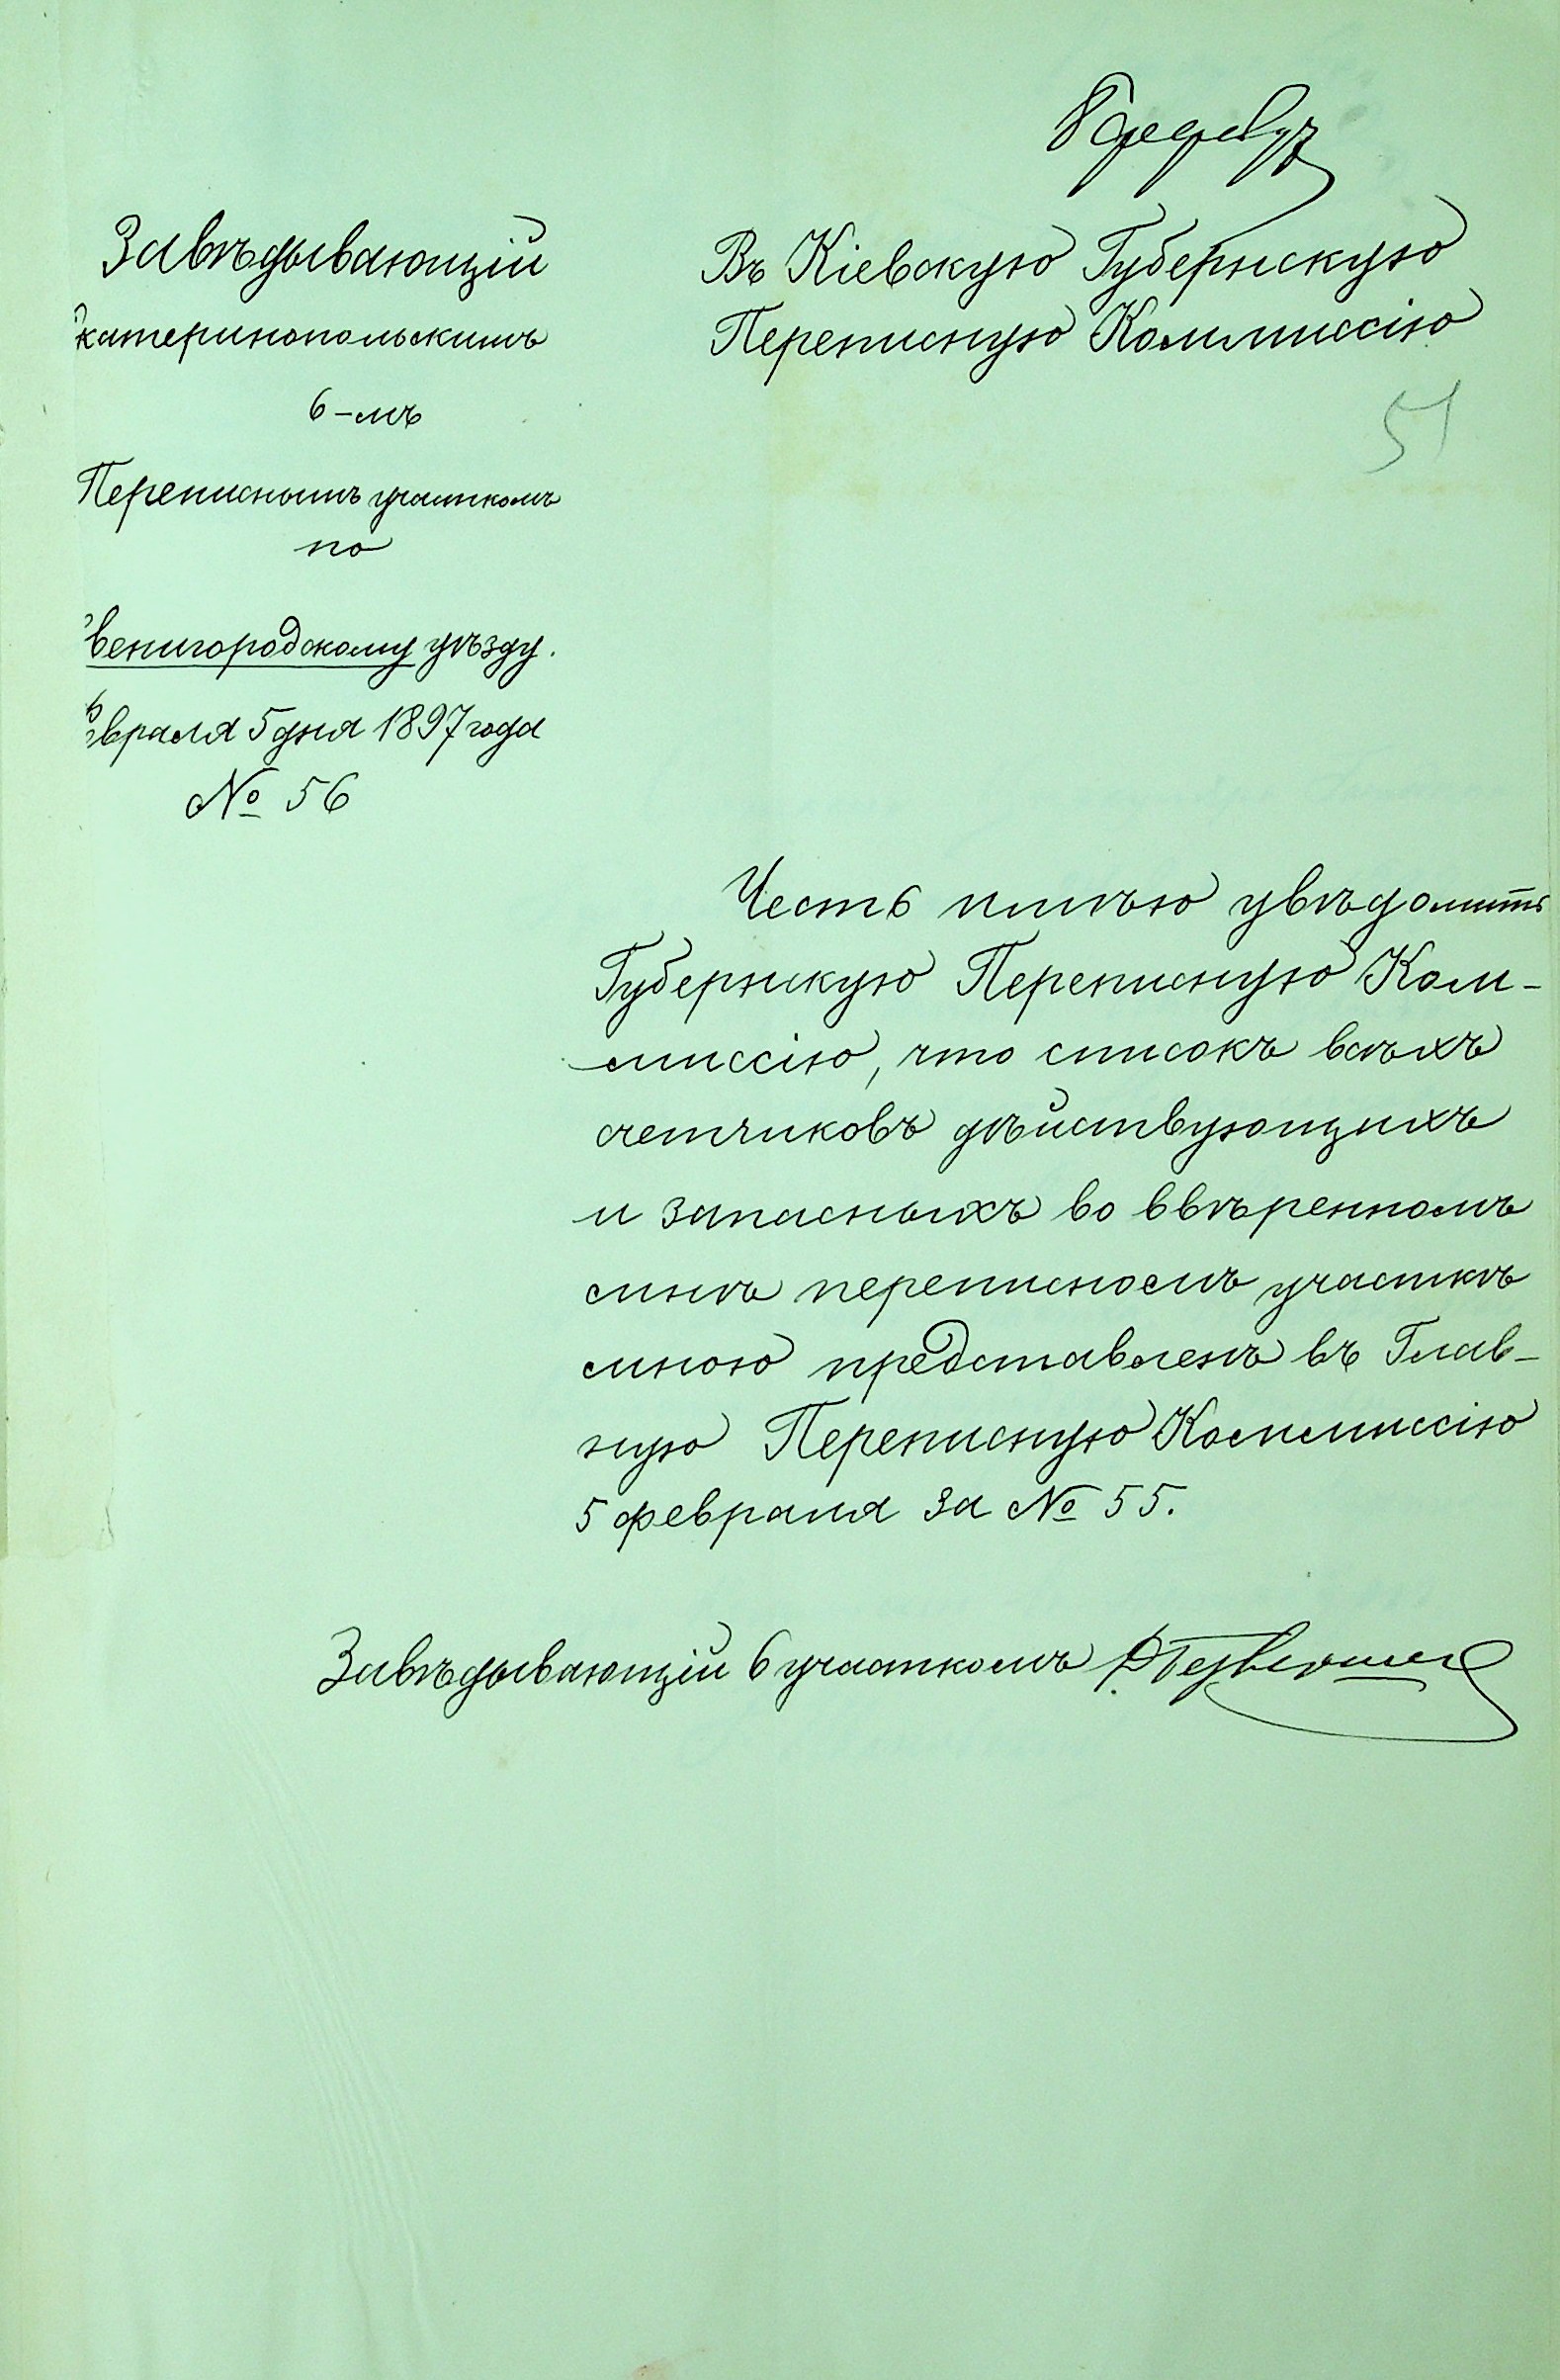 Завѣдывающій
катеринопольскимъ
6-мъ
Переписнымъ участкомъ
по
венигородскому уѣзду.
враля 5 дня 1897 года
№ 56
Въ Кіевскую Губернскую
Переписную Коммиссію
51
Честь имѣю увѣдомить
Губернскую Переписную Ком-
миссію, что списокъ всѣхъ
счетчиковъ дѣйствующихъ
и запасныхъ во ввѣренномъ
мнѣ переписномъ участкѣ
мною представленъ въ Глав-
ную Переписную Коммиссію
5 февраля за № 55.
Завѣдывающій 6 участкомъ